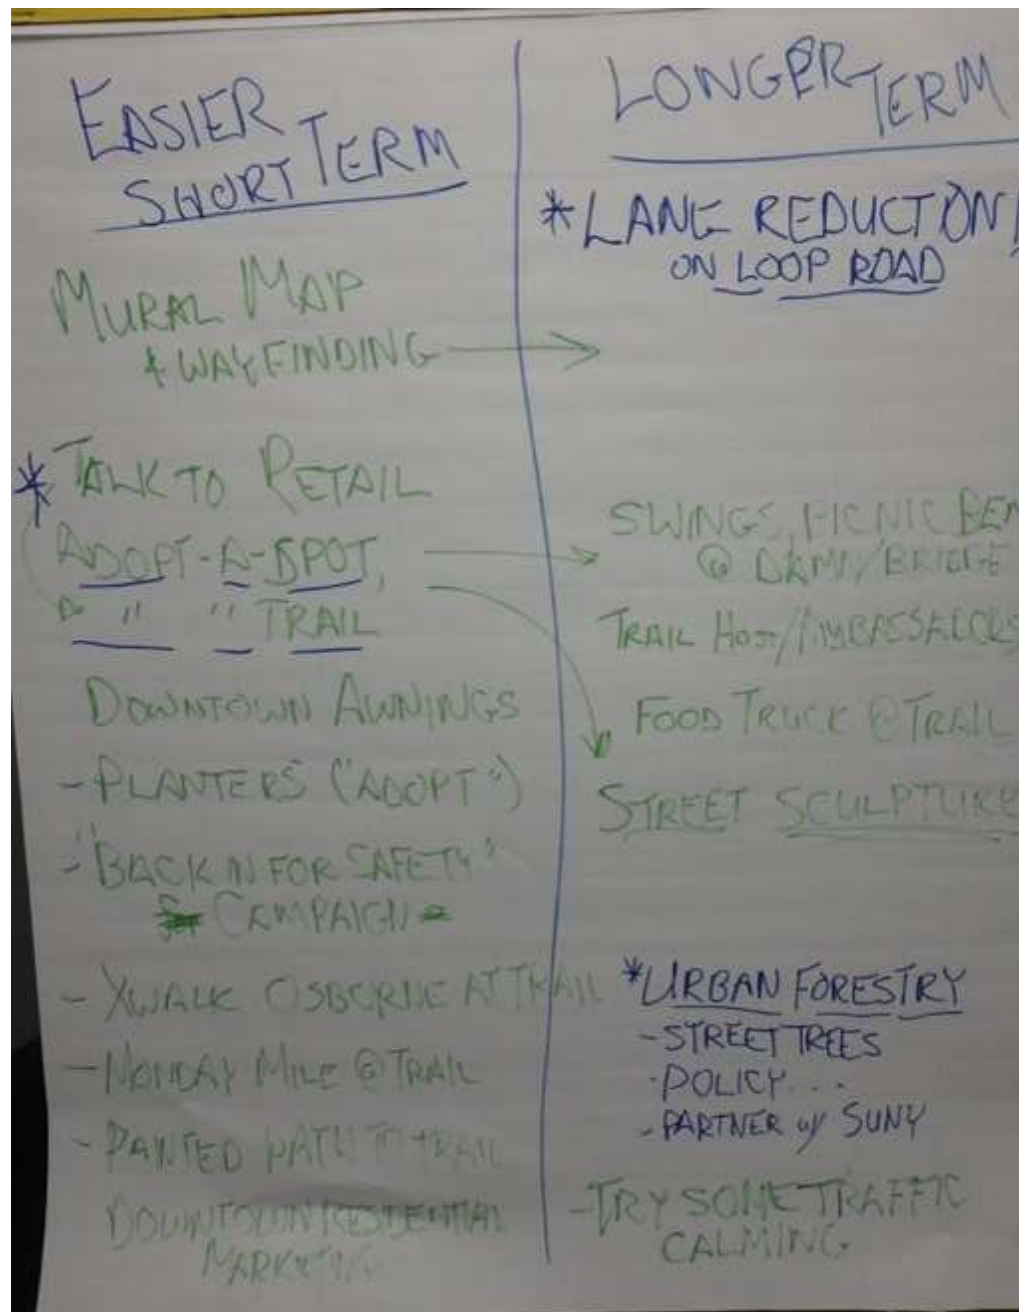 EASIER
SHORT TERM
MURAL MAP
& WAYFINDING
* TALK TO RETAIL
ADOPT-A-SPOT,
" " TRAIL
DOWNTOWN AWNINGS
- PLANTERS ("ADOPT")
- "BACK IN FOR SAFETY"
CAMPAIGN
- XWALK OSBORNE AT TRAIL
- MONDAY MILE @ TRAIL
- PAINTED PATH TO TRAIL
DOWNTOWN RESIDENTIAL
MARKETING
LONGER TERM
* LANE REDUCTION!
ON LOOP ROAD
SWINGS, PICNIC BEN
@ DAM/BRIDGE
TRAIL HOST/AMBASSADORS
FOOD TRUCK @ TRAIL
STREET SCULPTURE
* URBAN FORESTRY
- STREET TREES
- POLICY...
- PARTNER w/ SUNY
- TRY SOME TRAFFIC
CALMING